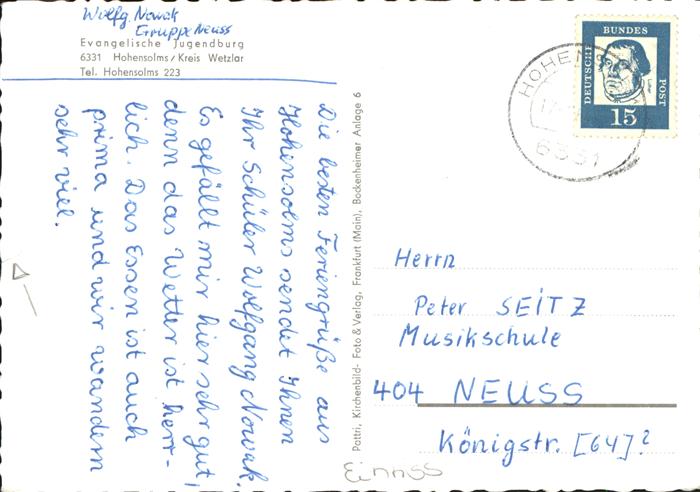 Wolfg. Nowak
Gruppe Neuss
Evangelische Jugendburg
6331 Hohensolms/Kreis Wetzlar
Tel. Hohensolms 223
Die besten Feriengrüße aus
Hohensolms sendet Ihnen
Ihr Schüler Wolfgang Nowak.
Es gefällt mir hier sehr gut,
denn das Wetter ist herr-
lich. Das Essen ist auch
prima und wir wandern
sehr viel.
Pattri, Kirchenbild- Foto & Verlag, Frankfurt (Main), Bockenheimer Anlage 6
DEUTSCHE
BUNDES
POST
15
6331
Herrn
Peter SEITZ
Musikschule
404 NEUSS
Königstr. [64]?